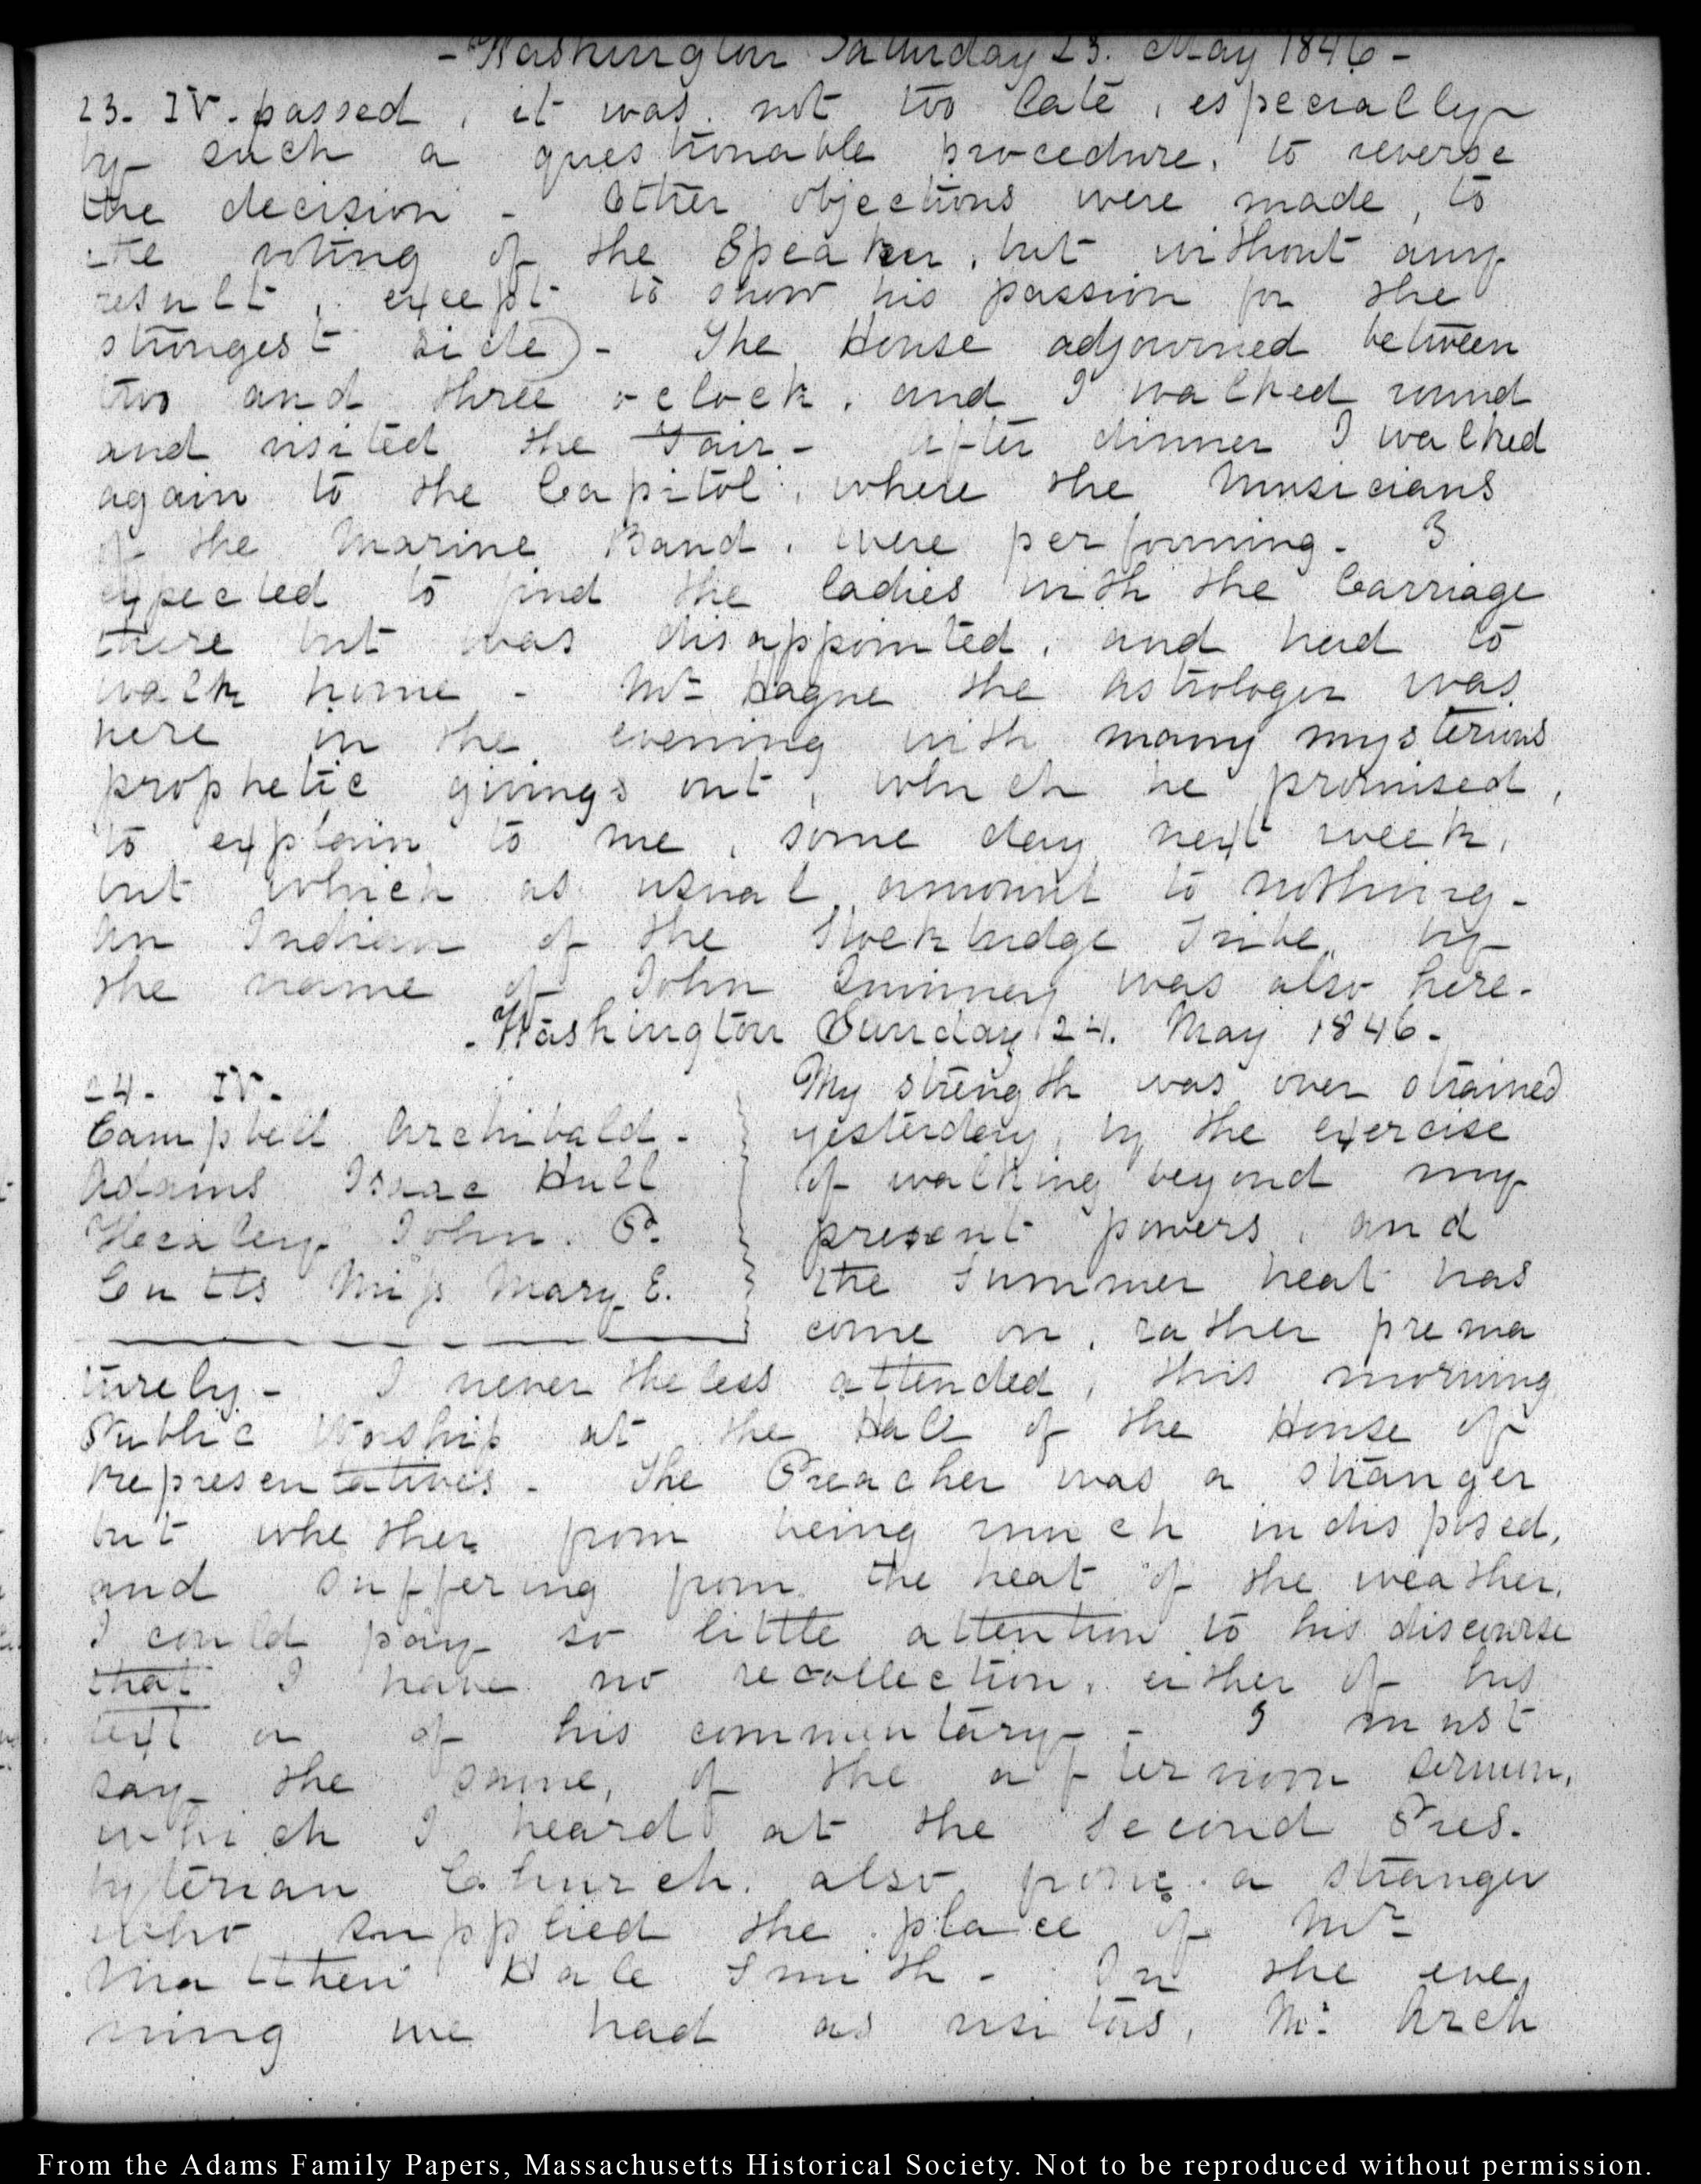 - Washington Saturday 23. May 1846 -
23. IV. passed, it was not too late, especially
by such a questionable procedure, to reverse
the decision - Other objections were made, to
the voting of the Speaker, but without any
result, except to show his passion for the
strongest side) - The House adjourned between
two and three o clock, and I walked round
and visited the Fair - After dinner I walked
again to the Capitol, where the Musicians
of the Marine Band, were performing - I
expected to find the ladies with the Carriage
there but was disappointed, and had to
walk home - Mr Hague the astrologer was
here in the evening with many mysterious
prophetic givings out, which he promised,
to explain to me, some day next week,
but which as usual amount to nothing -
An Indian of the Stockbridge Tribe, by
the name of John Quinney was also here -
- Washington Sunday 24. May 1846 -
24. IV.
Campbell Archibald -
Adams Isaac Hull
Healey John. P.
Cutts Miss Mary E.
My strength was over strained
yesterday, by the exercise
of walking beyond my
present powers, and
the Summer heat has
come on, rather prema
turely - I never the less attended, this morning
Public Worship at the Hall of the House of
Representatives - The Preacher was a stranger
but whether from being much indisposed,
and suffering from the heat of the weather,
I could pay so little attention to his discourse
that I have no recollection, either of his
text or of his commentary - I must
say the same, of the afternoon sermon,
which I heard at the Second Pres-
byterian Church, also from a stranger
who supplied the place of Mr
Matthew Hale Smith - In the eve,
ning we had as visitors, Mr Arch
From the Adams Family Papers, Massachusetts Historical Society. Not to be reproduced without permission.